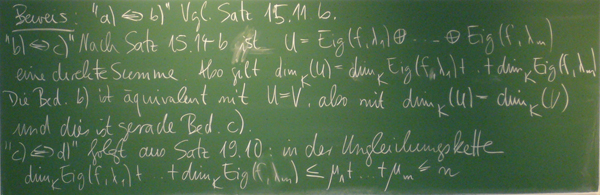 Beweis: "a) ⇔ b)" Vgl. Satz 15.11.b.
"b) ⇔ c)" Nach Satz 15.14b ist U = Eig(f, λ₁) ⊕ ... ⊕ Eig(f, λₘ)
eine direkte Summe. Also gilt dim_K(U) = dim_K Eig(f, λ₁) + ... + dim_K Eig(f, λₘ)
Die Bed. b) ist äquivalent mit U = V, also mit dim_K(U) = dim_K(V)
und dies ist gerade Bed. c).
"c) ⇔ d)" folgt aus Satz 19.10: in der Ungleichungskette
dim_K Eig(f, λ₁) + ... + dim_K Eig(f, λₘ) ≤ μ₁ + ... + μₘ ≤ n